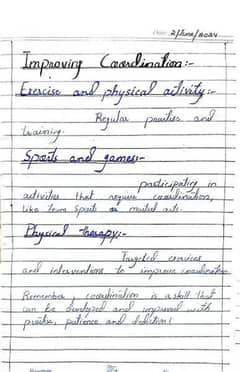 Date: 2/June/2024
Improving Coordination:-
Exercise and physical activity:-
Regular practice and
training.
Sports and games:-
participating in
activities that require coordination,
like team sports or martial arts.
Physical therapy:-
Targeted exercises
and interventions to improve coordination
Remember, coordination is a skill that
can be developed and improved with
practice, patience and dedication!